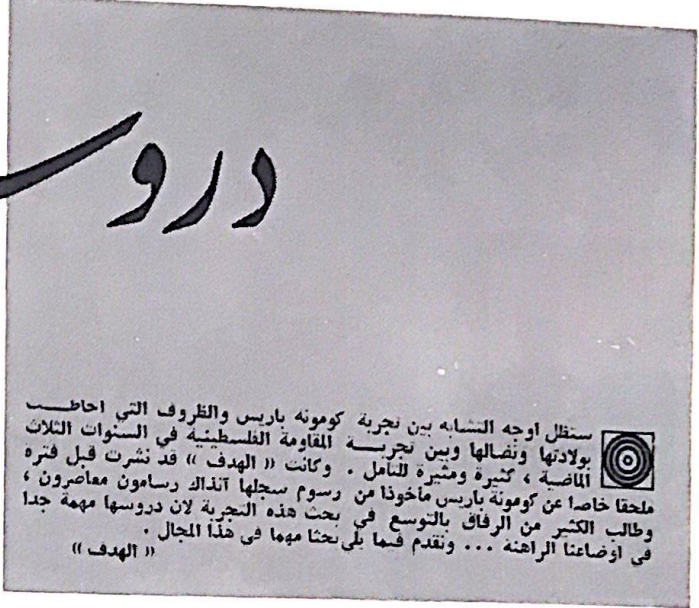 دروس
ستظل اوجه التشابه بين تجربة كومونه باريس والظروف التي احاطت
بولادتها ونضالها وبين تجربة المقاومة الفلسطينية في السنوات الثلاث
الماضية ، كثيرة ومثيرة للتامل . وكانت (( الهدف )) قد نشرت قبل فتره
ملحقا خاصا عن كومونة باريس ماخوذا من رسوم سجلها آنذاك رسامون معاصرون ،
وطالب الكثير من الرفاق بالتوسع في بحث هذه التجربة لان دروسها مهمة جدا
في اوضاعنا الراهنة ... ونقدم فيما يلي بحثا مهما في هذا المجال .
(( الهدف ))